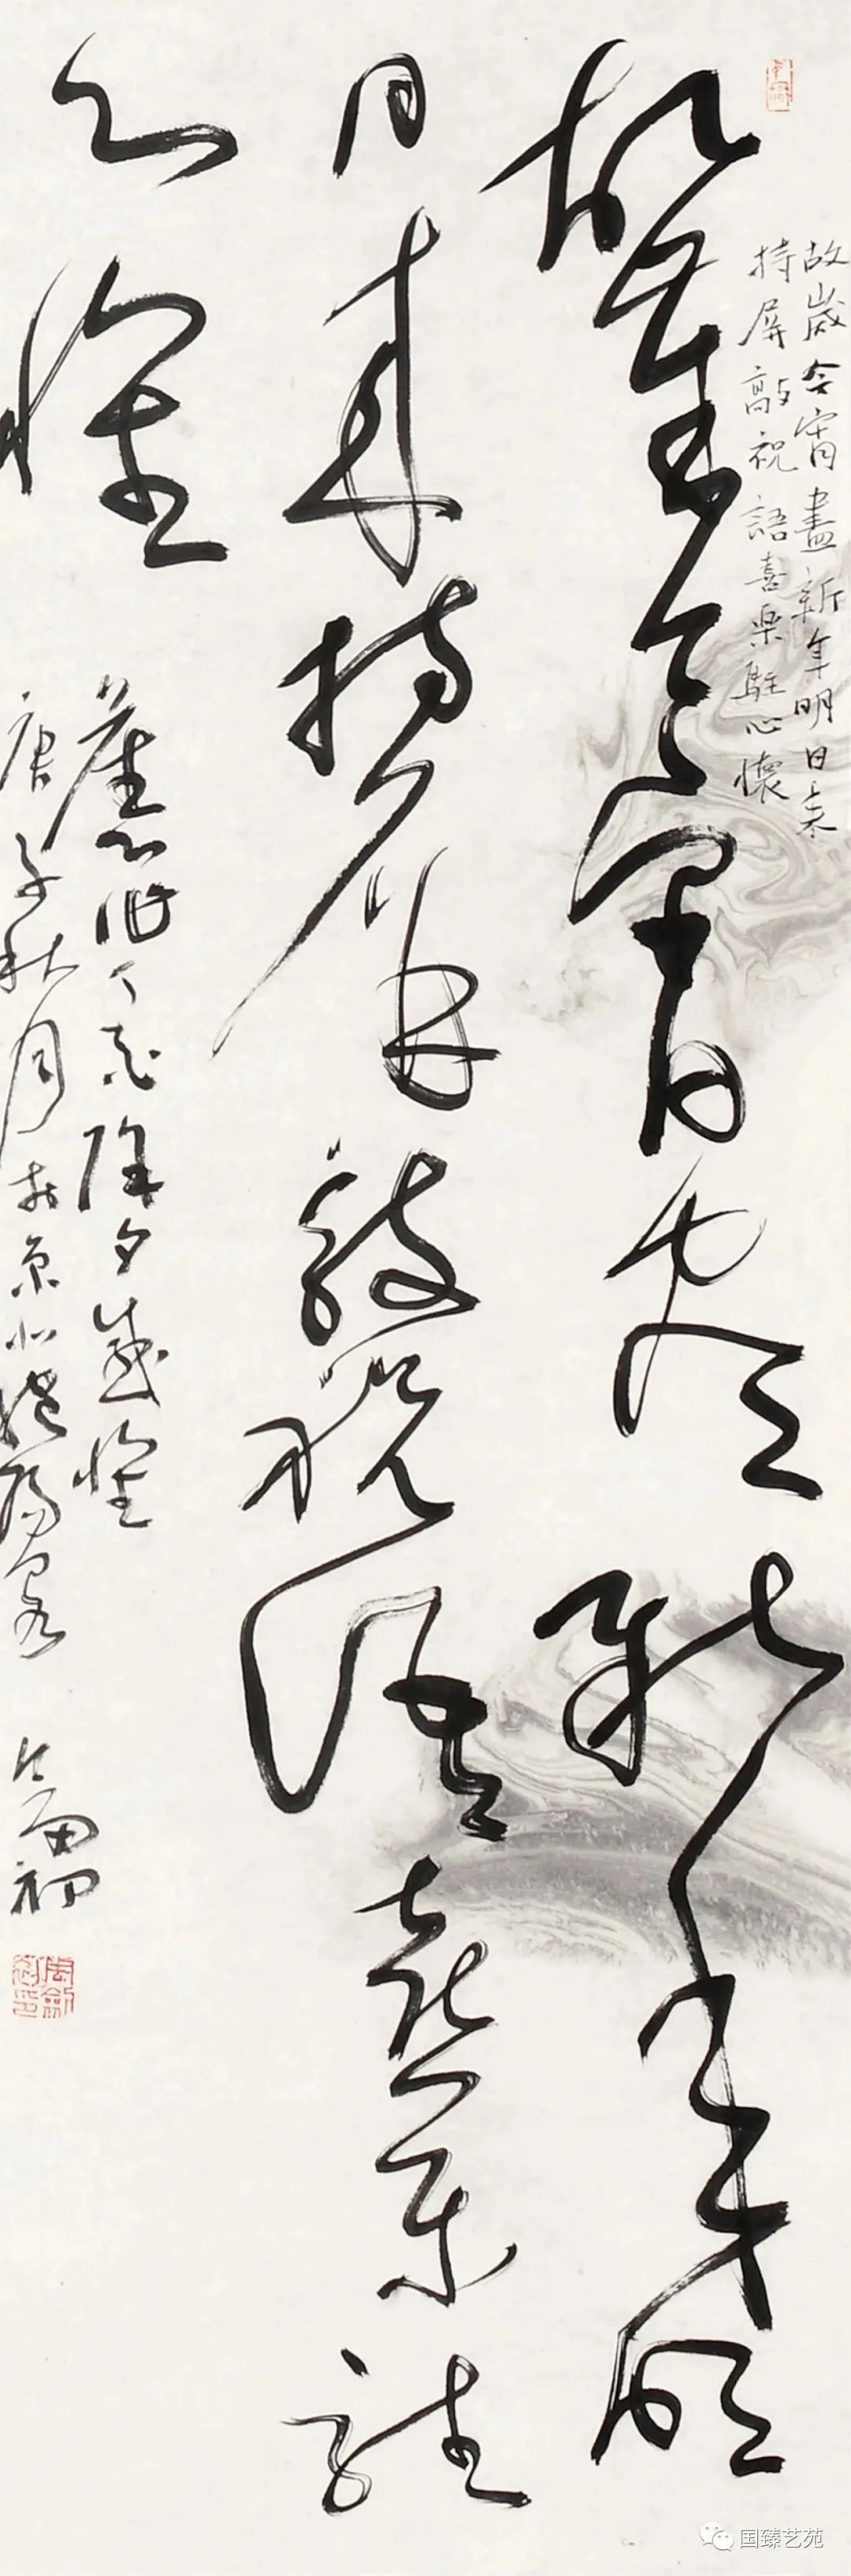 故歲今宵盡新年明日来
持屏敲祝語喜樂駐心懷
故歲今宵盡新年明
日来持屏敲祝語喜樂駐
心懷
除夕感懷
庚子秋月於京北
周劍初印
国臻艺苑